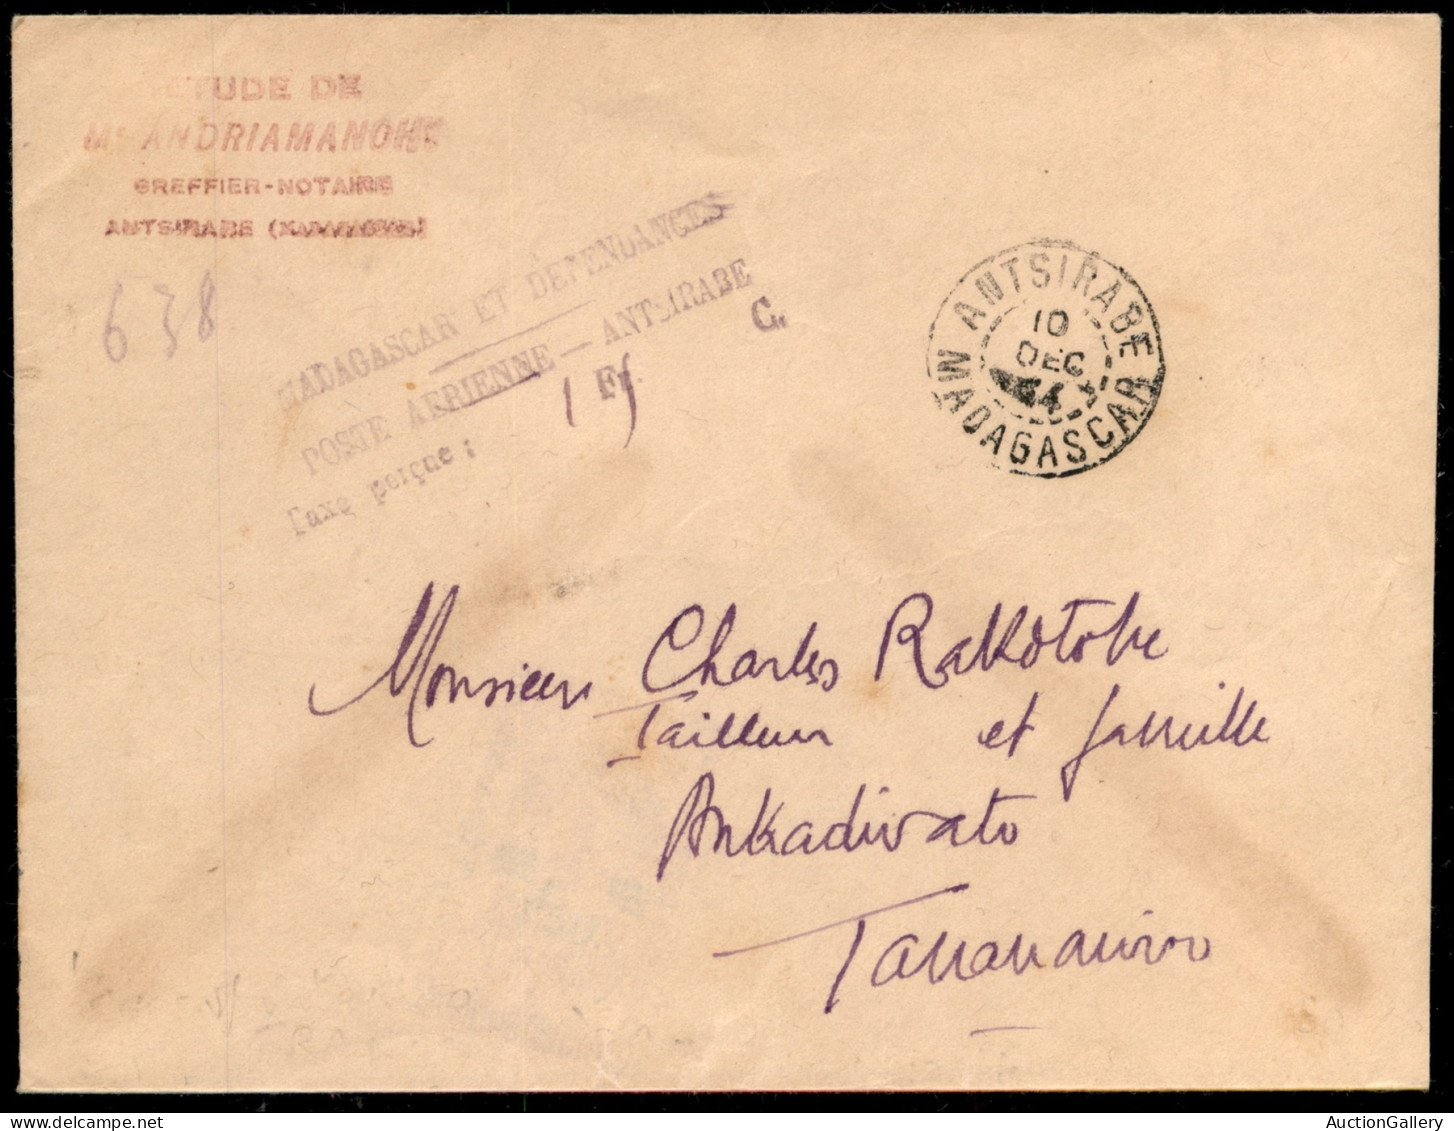 ETUDE DE
Me ANDRIAMANOHY
GREFFIER-NOTAIRE
ANTSIRABE
638
MADAGASCAR ET DEPENDANCES
POSTE AERIENNE — ANTSIRABE
Taxe perçue : 1 Fr. C.
ANTSIRABE
10
DEC
MADAGASCAR
Monsieur Charles Rakotobe
Tailleur et famille
Ankadivato
Tananarive
AuctionGallery